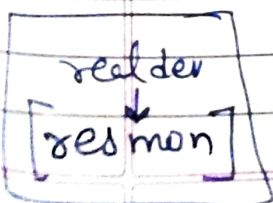 real dev
↓
[resmon]